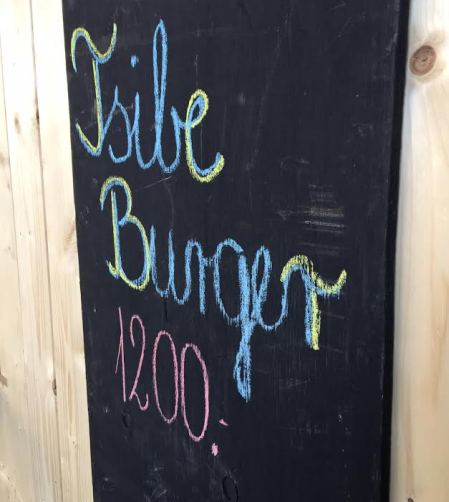 Tsibe
Burger
1200.-